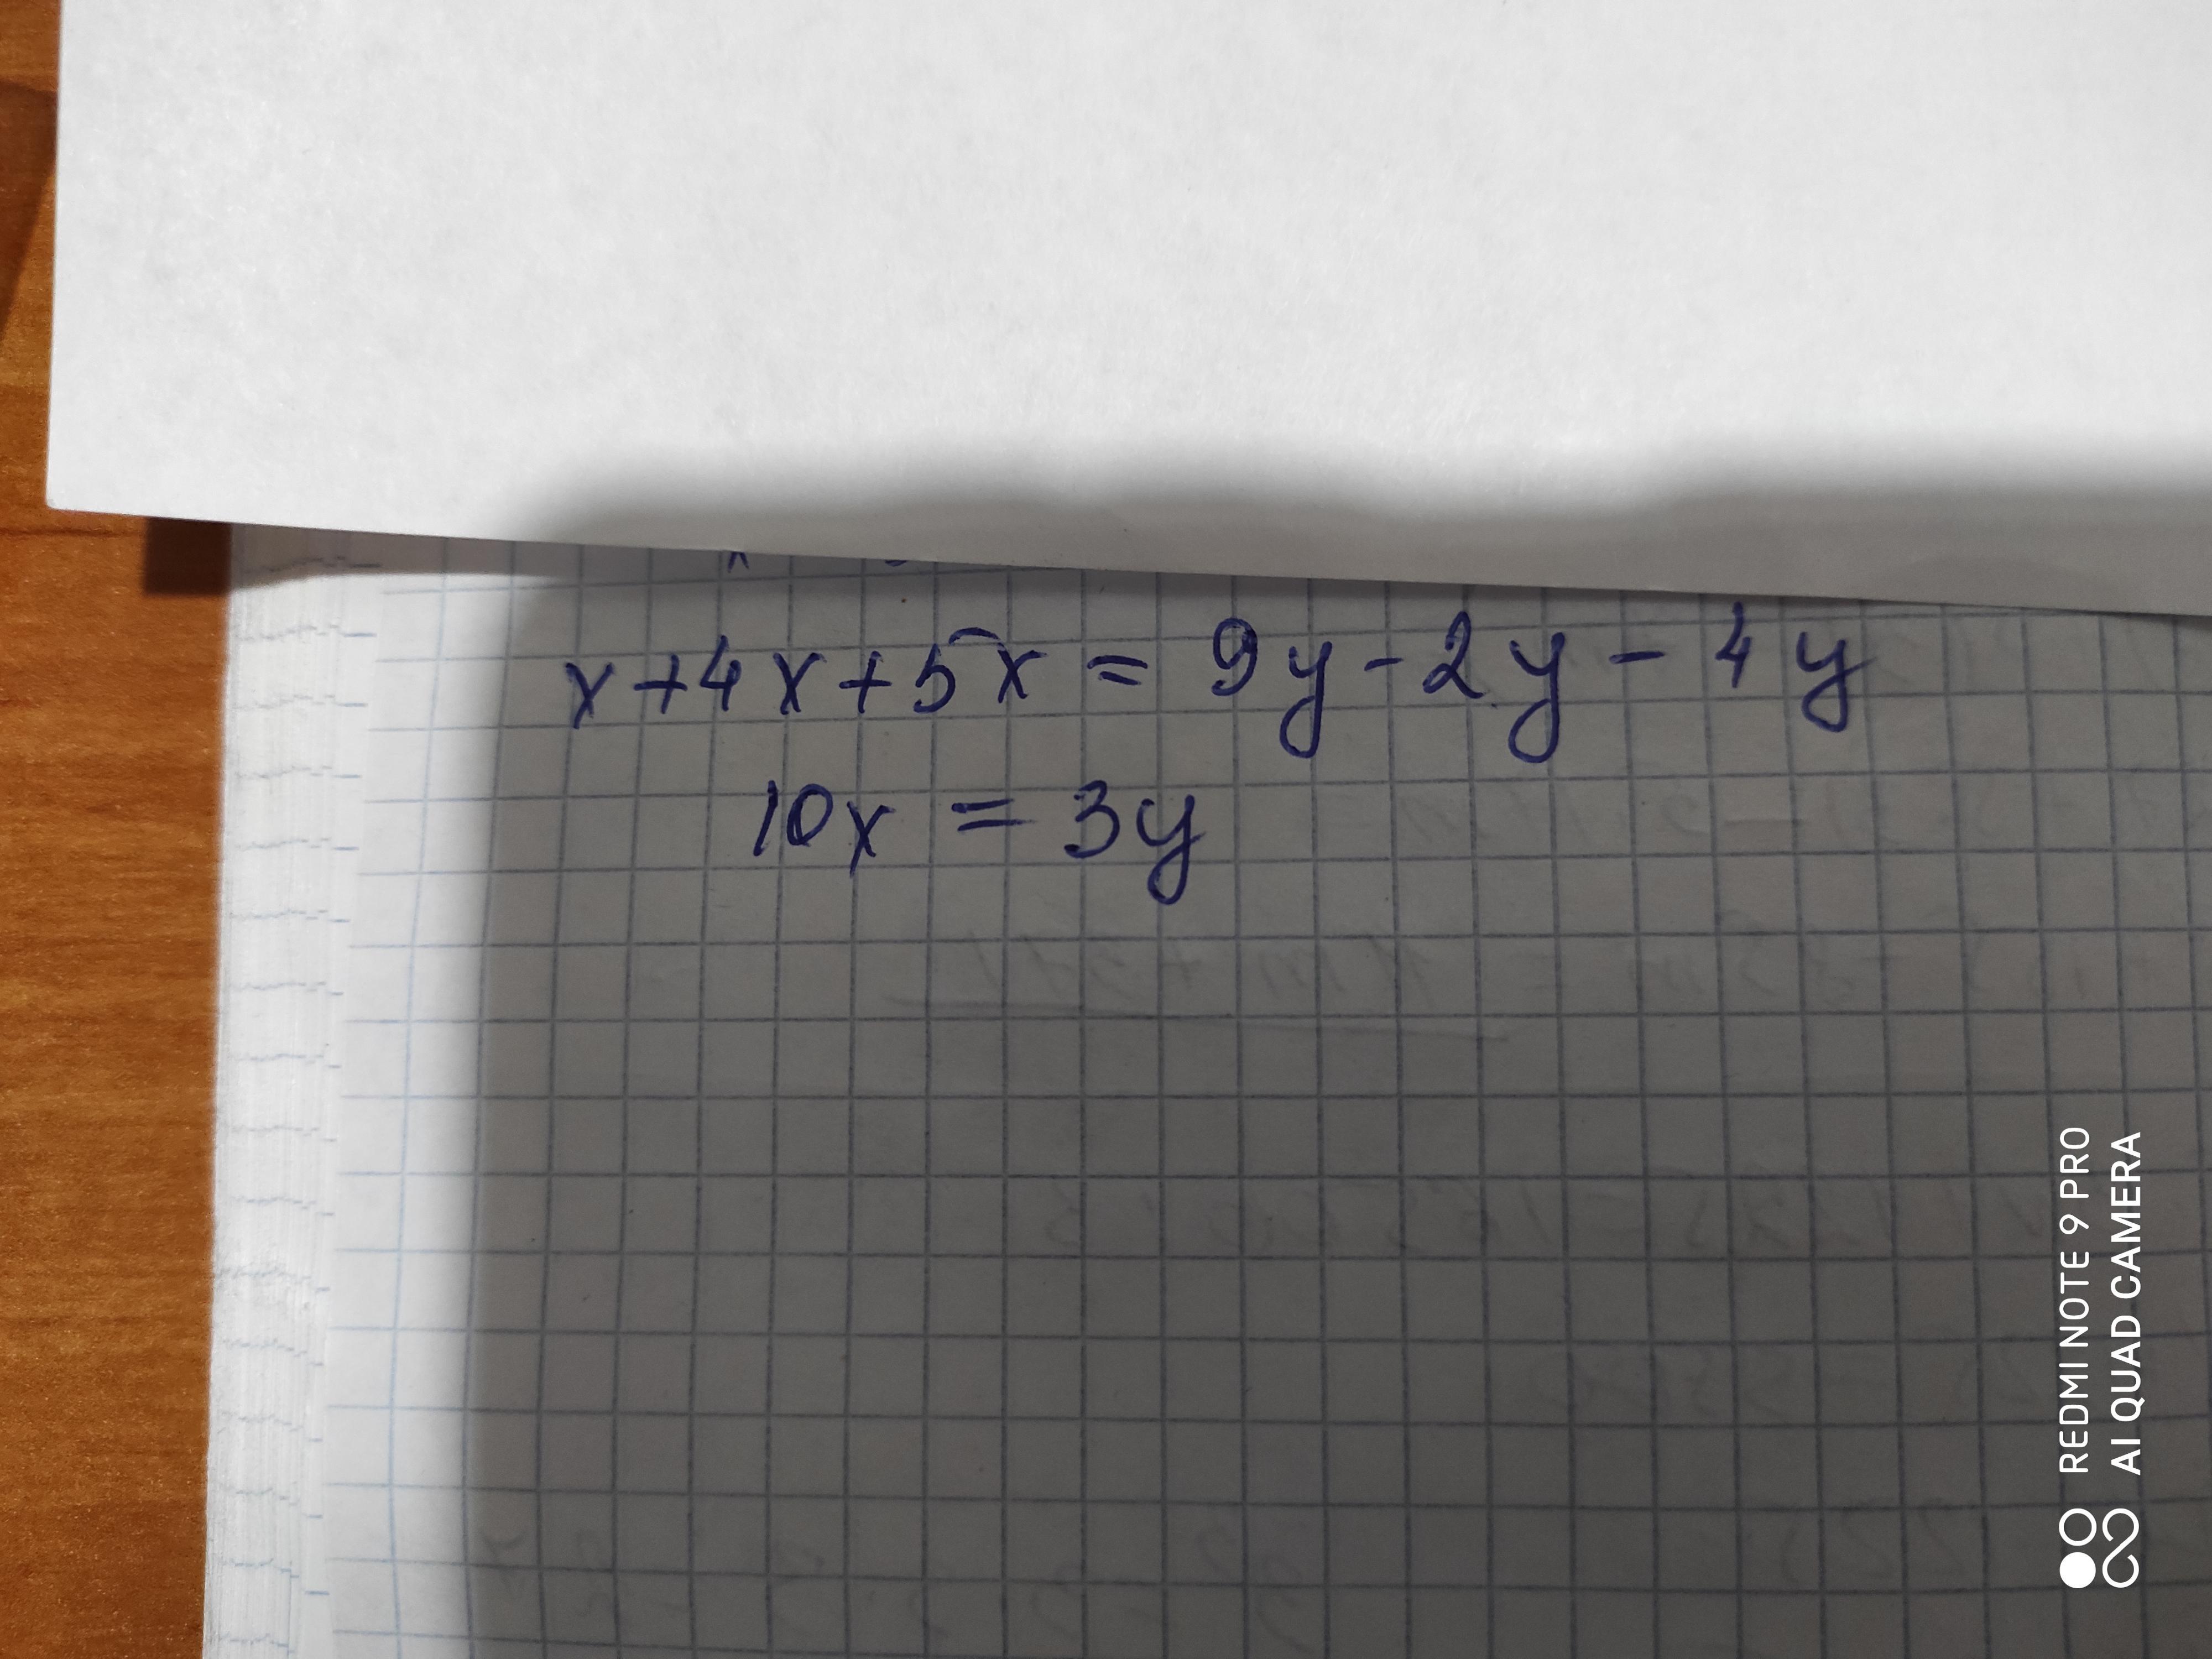 x+4x+5x = 9y-2y-4y
10x = 3y
REDMI NOTE 9 PRO
AI QUAD CAMERA